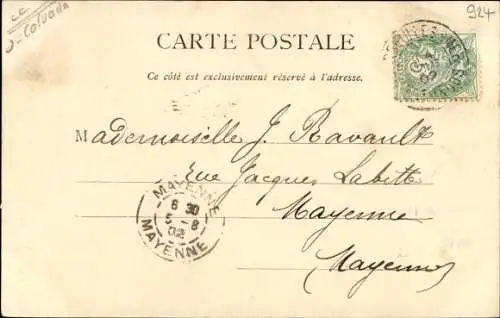 924
Calvados
CARTE POSTALE
Ce côté est exclusivement réservé à l'adresse.
Mademoiselle J. Ravault
Rue Jacques Labitte
Mayenne
(Mayenne)
MAYENNE
6 30
5 - 8
02
MAYENNE